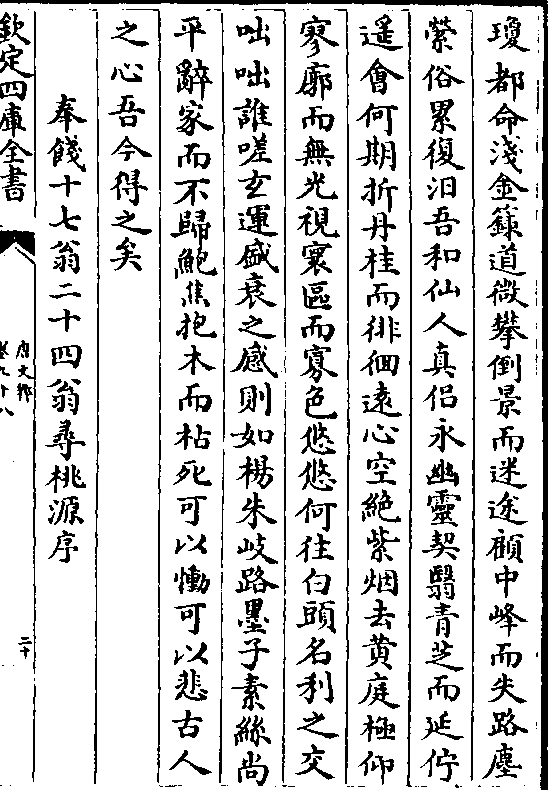 瓊都命淺金籙道微攀倒景而迷途顧中峰而失路塵
縈俗累復汨吾和仙人真侣永幽靈契翳青芝而延佇
遥會何期折丹桂而徘徊遠心空絶紫烟去黄庭極仰
寥廓而無光視寰區而寡色悠悠何往白頭名利之交
咄咄誰嗟玄運盛衰之感則如楊朱岐路墨子素絲尚
平辭家而不歸鮑焦抱木而枯死可以慟可以悲古人
之心吾今得之矣
奉餞十七翁二十四翁尋桃源序
欽定四庫全書
唐文粹
卷九十八
二十